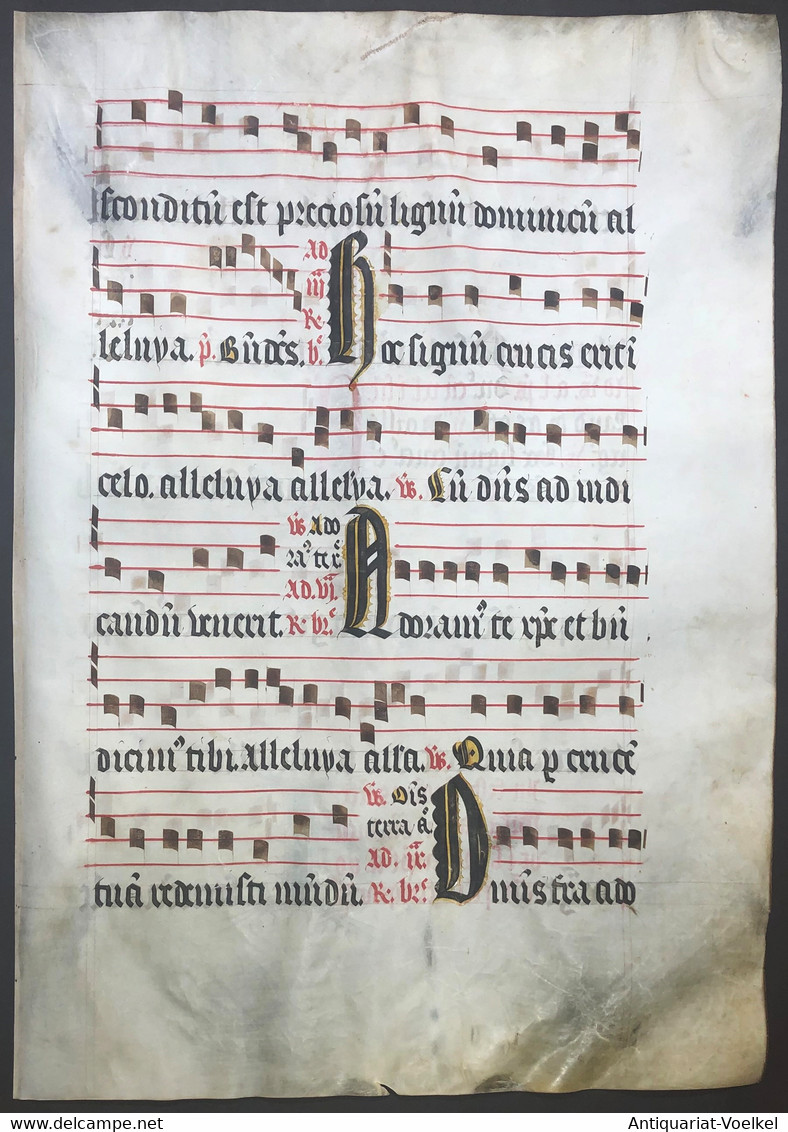 sconditū est preciosū lignū dominicū al
Ad
iij
R.
leluya. p. Būdcs. br. Hoc signū crucis erit ī
celo. alleluya allelya. V̄s. Cū dn̄s ad iudi
V̄s Ado
ram⁹ te x̄
Ad. vj.
candū venerit. R. br. Adoram⁹ te xp̄e et bn̄
dicim⁹ tibi. Alleluya all'a. V̄s. Quia ꝑ crucē
V̄s. Oīs
terra a.
Ad. ix.
tuā redemisti mūdū. R. br. Omīs t̄ra ado
Antiquariat-Voelkel